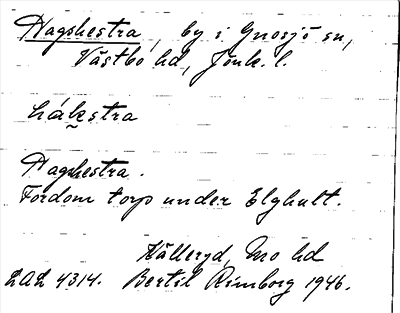 Hagshestra, by i Gnosjö sn,
Västbo hd, Jönk. l.
hákstra
Hagshestra.
Fordom torp under Elghult.
Källeryd, Mo hd
LAL 4314. Bertil Rimborg 1946.